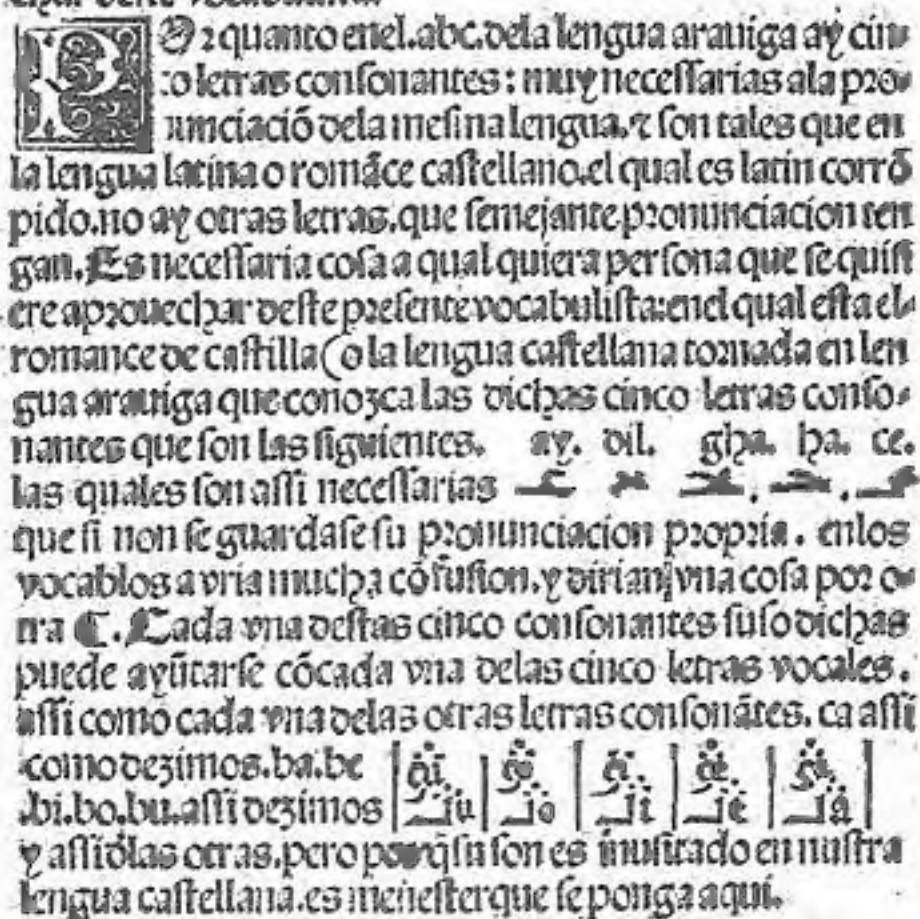 POR quanto enel.abc.dela lengua arauiga ay cin-
co letras consonantes: muy necessarias ala pro-
nunciaciō dela mesma lengua.⁊ son tales que en
la lengua latina o romāce castellano.el qual es latin corrō
pido.no ay otras letras.que semejante pronunciacion ten
gan. Es necessaria cosa a qual quiera persona que se quisi
ere aprouechar deste presente vocabulista:enel qual esta el
romance de castilla (o la lengua castellana tornada en len
gua arauiga que conozca las dichas cinco letras conso-
nantes que son las siguientes. ay. dil. gha. ha. ce.
las quales son assi necessarias
que si non se guardase su pronunciacion propria. enlos
vocablos avria mucha cōfusion.y dirian vna cosa por o-
tra ¶. Cada vna destas cinco consonantes suso dichas
puede ayūtarse cōcada vna delas cinco letras vocales.
assi como cada vna delas otras letras consonātes. ca assi
como dezimos.ba.be
.bi.bo.bu.assi dezimos
y assi dlas otras.pero porq̄ su son es inusitado en nustra
lengua castellana.es menester que se ponga aqui.